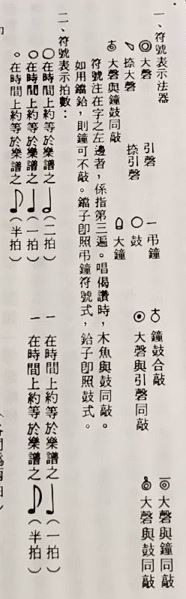 一、符號表示法器
◎大磬 引磬 一吊鐘 鐘鼓合敲 大磬與鐘同敲
捺大磬 捺引磬 ○鼓 大鐘 ⊙大磬與引磬同敲 大磬與鼓同敲
大磬與鐘鼓同敲
符號注在字之左邊者，係指第三遍。唱偈讚時，木魚與鼓同敲。
如用鐺鉿，則鐘可不敲。鐺子卽照吊鐘符號式，鉿子卽照鼓式。
二、符號表示拍數：
○在時間上約等於樂譜之（二拍） 一在時間上約等於樂譜之（一拍）
○在時間上約等於樂譜之（一拍） 一在時間上約等於樂譜之（半拍）
○在時間上約等於樂譜之（半拍）